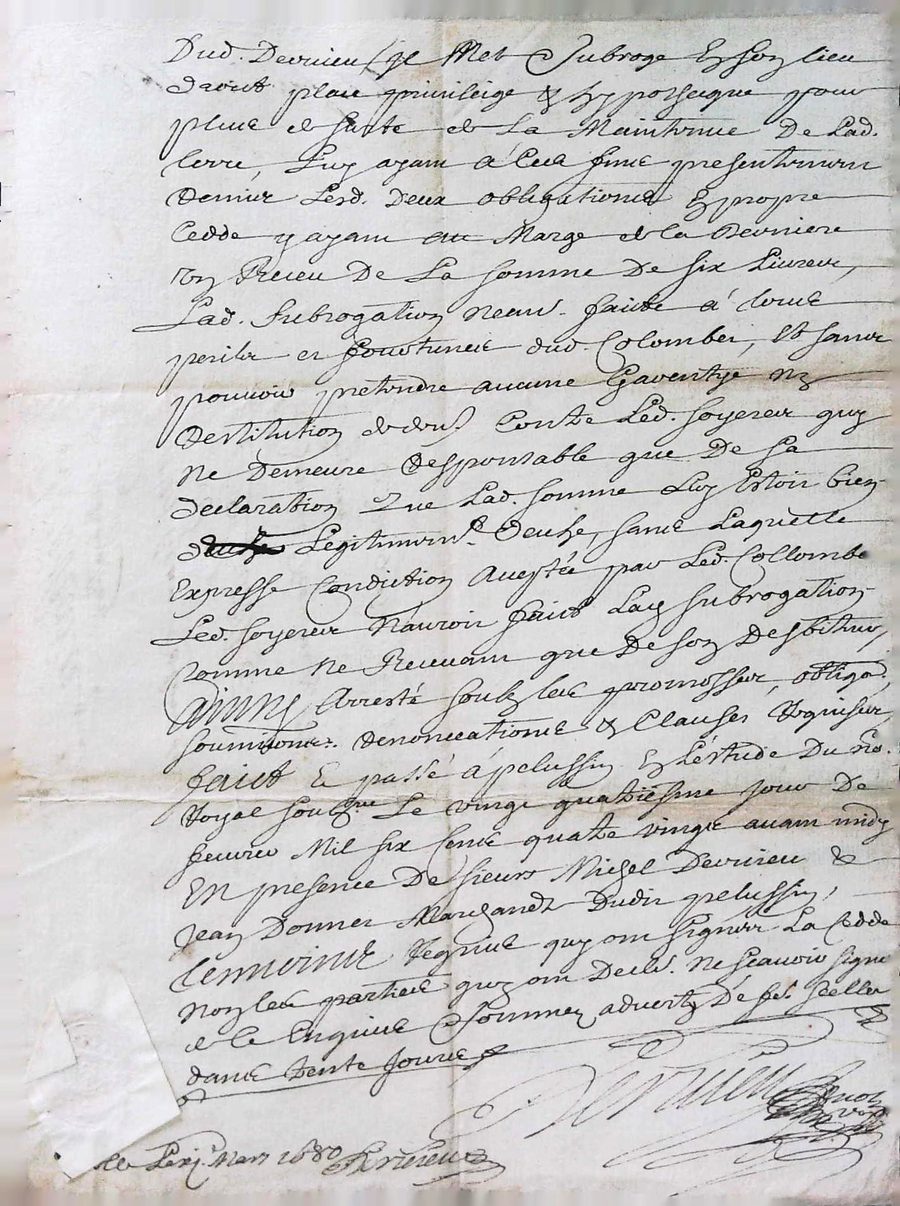 Dud. Devrieu, Et Met Subroge En son lieu
droict place privileige & hypotheque pour
plus et suite de La Maintenue De Lad.
terre, Luy ayam à Ceste fine presentement
Remis Lesd. Deux obligations En propre
Cedde y ayam au Marge de la Derniere
Un Receu De La somme De six Livres,
Lad. Subrogation neam. faicte à tous
perilz et fourtunes dud. Colombet, Et sans
pouvoir pretendre aucune Garentye ny
Restitution de den. Contre Led. Soyereux quy
Ne Demeure Responsable que De Sa
declaration Que Lad. somme Luy Estoit bien
Legitimemt. Deuhe, sans Laquelle
Expresse Condiction Aceptée par Led. Collombe
Led. Soyereux N'auroit faict Lad. subrogation
comme ne Recevam que De son Desbiteur,
Ainsy Arresté soubz les promosses, obligaõ.
soumitions. Renonciations & Clauses Requises,
faict Et passé à pelussin En L'estude Du No.
Royal soubzne. Le vingt quatriesme jour De
feuvrier Mil six Cens quatre vingtz avam midy
En presence De sieurs Michel Devrieu &
Jean Donnet Marchandz Dudit pelussin,
tesmoins Requis quy om signez La Cedde
Non les parties quy om De ne scavoir signe
de le Enquise & Sommez advertz De fe. sceller
dans trente Jours
Devrieu
Mars 1680